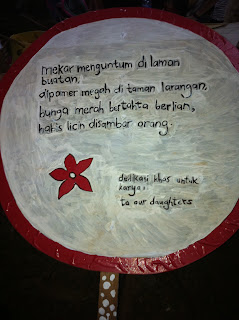 mekar menguntum di laman
buatan,
dipamer megah di taman larangan,
bunga merah bertahta berlian,
habis licin disambar orang.
dedikasi khas untuk
karya:
to our daughters